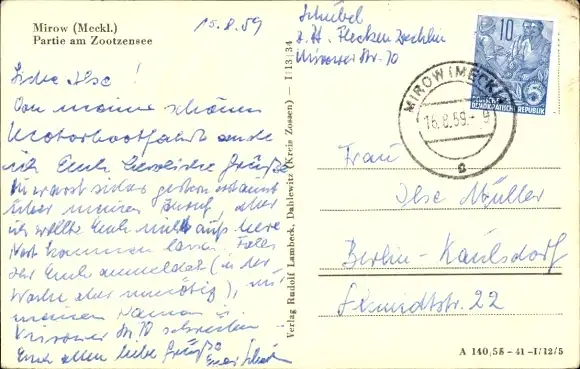 Mirow (Meckl.)
Partie am Zootzensee
15.8.59
Schübel
z. Zt. Flecken Zechlin
Mirower Str. 70
10
DEUTSCHE
DEMOKRATISCHE REPUBLIK
MIROW (MECKL)
15.8.59.-9
a
Liebe Ilse!
Von meiner schönen
Motorbootfahrt sende
ich Euch herzliche Grüße
Du warst sicher gestern erstaunt
über meinen Anruf, aber
ich wollte Euch nicht aufs leere
kommen lassen. Falls
Ihr Euch anmeldet (in der
Woche aber unnötig), an
meinen Namen u.
Mirower Str 70 schreiben
Euch allen liebe Grüße
Verlag Rudolf Lambeck, Dahlewitz (Kreis Zossen) — I/13/34
Frau
Ilse Müller
Berlin-Kaulsdorf
Schmidtstr. 22
A 140,58-41-I/12/5